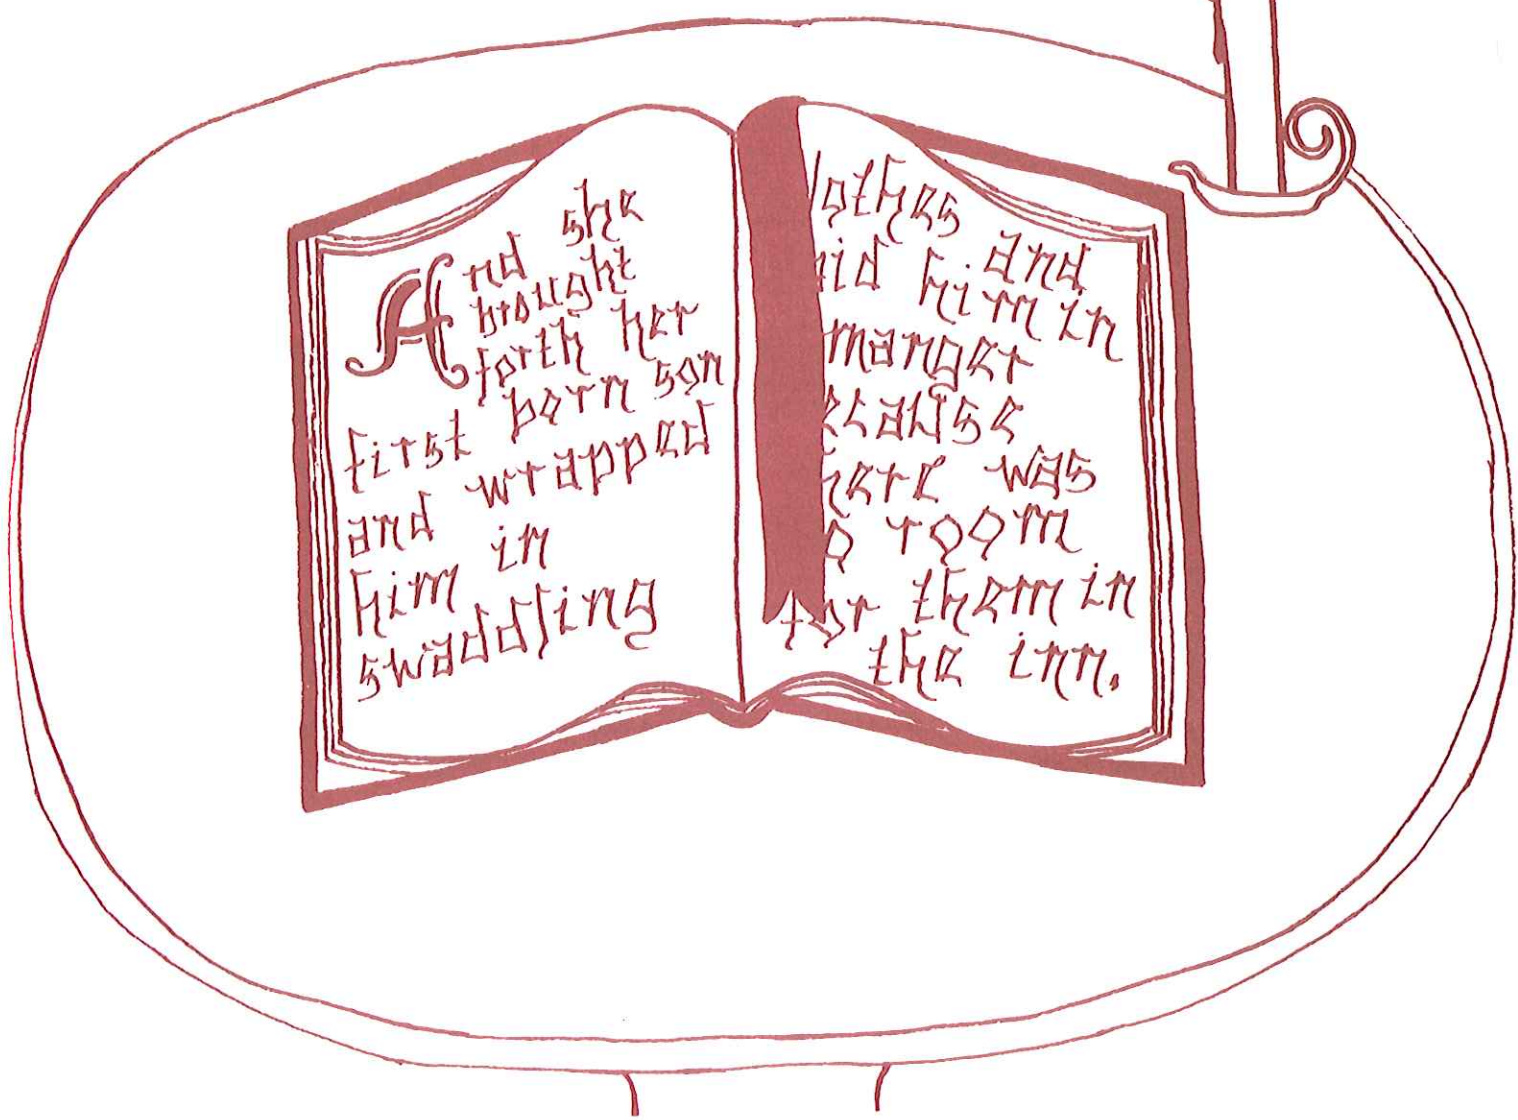 And she
brought
forth her
first born son
and wrapped
him in
swaddling
lothes and
aid him in
manger
ecause
here was
o room
for them in
the inn.